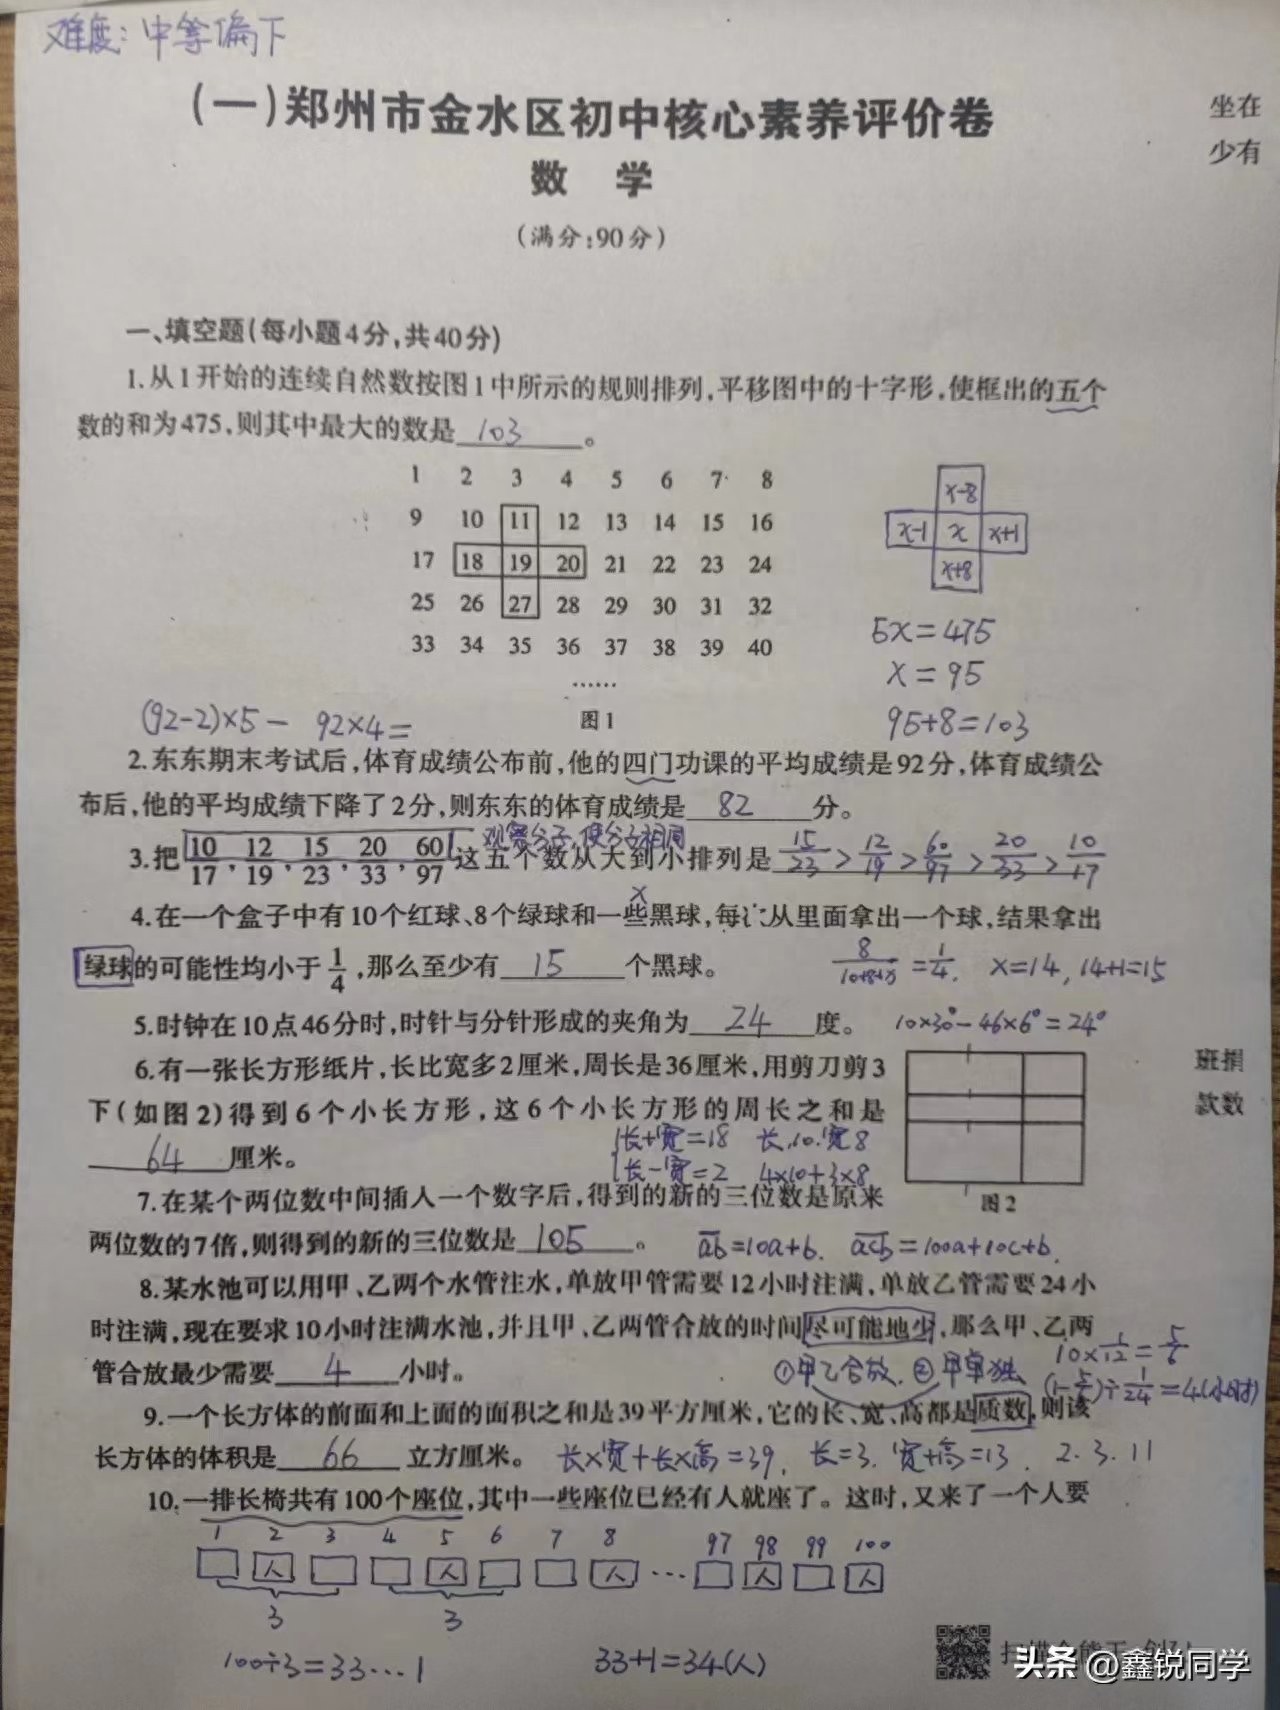 难度：中等偏下
(一)郑州市金水区初中核心素养评价卷
坐在
数 学
少有
(满分:90分)
一、填空题(每小题4分,共40分)
1.从1开始的连续自然数按图1中所示的规则排列,平移图中的十字形,使框出的五个
数的和为475,则其中最大的数是 103 。
1 2 3 4 5 6 7 8
9 10 11 12 13 14 15 16
17 18 19 20 21 22 23 24
25 26 27 28 29 30 31 32
33 34 35 36 37 38 39 40
……
图1
x-8
x-1 x x+1
x+8
5x=475
x=95
95+8=103
(92-2)×5- 92×4=
2.东东期末考试后,体育成绩公布前,他的四门功课的平均成绩是92分,体育成绩公
布后,他的平均成绩下降了2分,则东东的体育成绩是 82 分。
观察分子,使分子相同
3.把10/17,12/19,15/23,20/33,60/97这五个数从大到小排列是 15/23>12/19>60/97>20/33>10/17
x
4.在一个盒子中有10个红球、8个绿球和一些黑球,每次从里面拿出一个球,结果拿出
绿球的可能性均小于1/4,那么至少有 15 个黑球。
8/(10+8+x)=1/4. x=14, 14+1=15
5.时钟在10点46分时,时针与分针形成的夹角为 24 度。 10×30°-46×6°=24°
6.有一张长方形纸片,长比宽多2厘米,周长是36厘米,用剪刀剪3
下(如图2)得到6个小长方形,这6个小长方形的周长之和是
64 厘米。
长+宽=18 长.10.宽8
长-宽=2 4×10+3×8
图2
班捐
款数
7.在某个两位数中间插入一个数字后,得到的新的三位数是原来
两位数的7倍,则得到的新的三位数是 105 。 ab=10a+b. acb=100a+10c+b.
8.某水池可以用甲、乙两个水管注水,单放甲管需要12小时注满,单放乙管需要24小
时注满,现在要求10小时注满水池,并且甲、乙两管合放的时间尽可能地少,那么甲、乙两
管合放最少需要 4 小时。
①甲乙合放.②甲单独
10×1/12=5/6
(1-5/6)÷1/24=4(小时)
9.一个长方体的前面和上面的面积之和是39平方厘米,它的长、宽、高都是质数,则该
长方体的体积是 66 立方厘米。 长×宽+长×高=39, 长=3. 宽+高=13. 2.3.11
10.一排长椅共有100个座位,其中一些座位已经有人就座了。这时,又来了一个人要
1 2 3 4 5 6 7 8 97 98 99 100
人 人 人 … 人 人
3 3
100÷3=33…1 33+1=34(人)
头条 @鑫锐同学